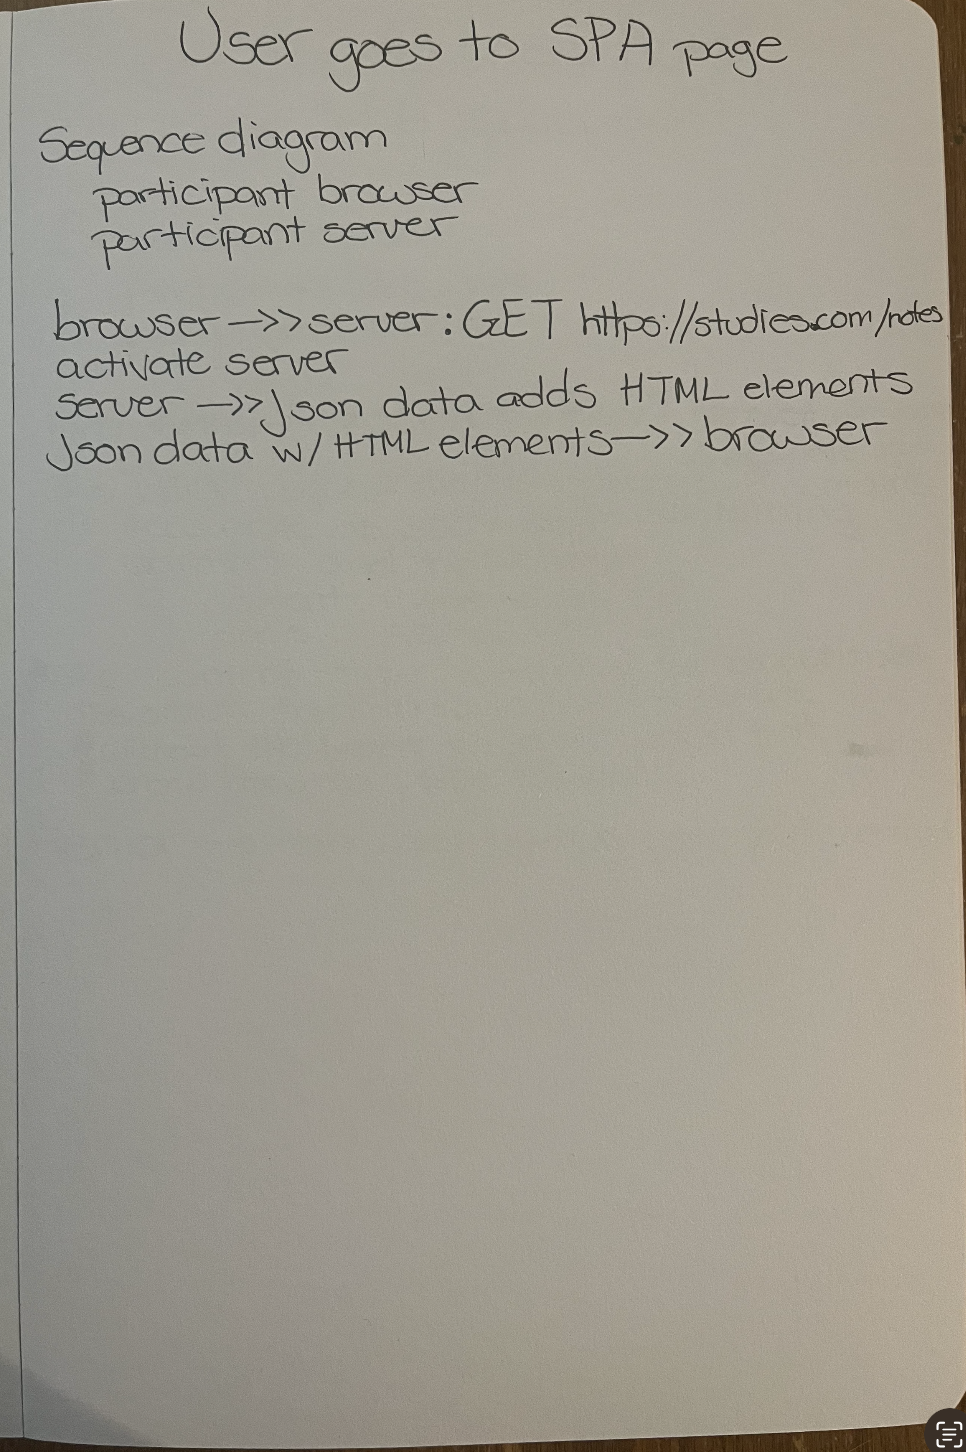 User goes to SPA page
Sequence diagram
participant browser
participant server
browser ->> server: GET https://studies.com/notes
activate server
server ->> Json data adds HTML elements
Json data w/ HTML elements ->> browser